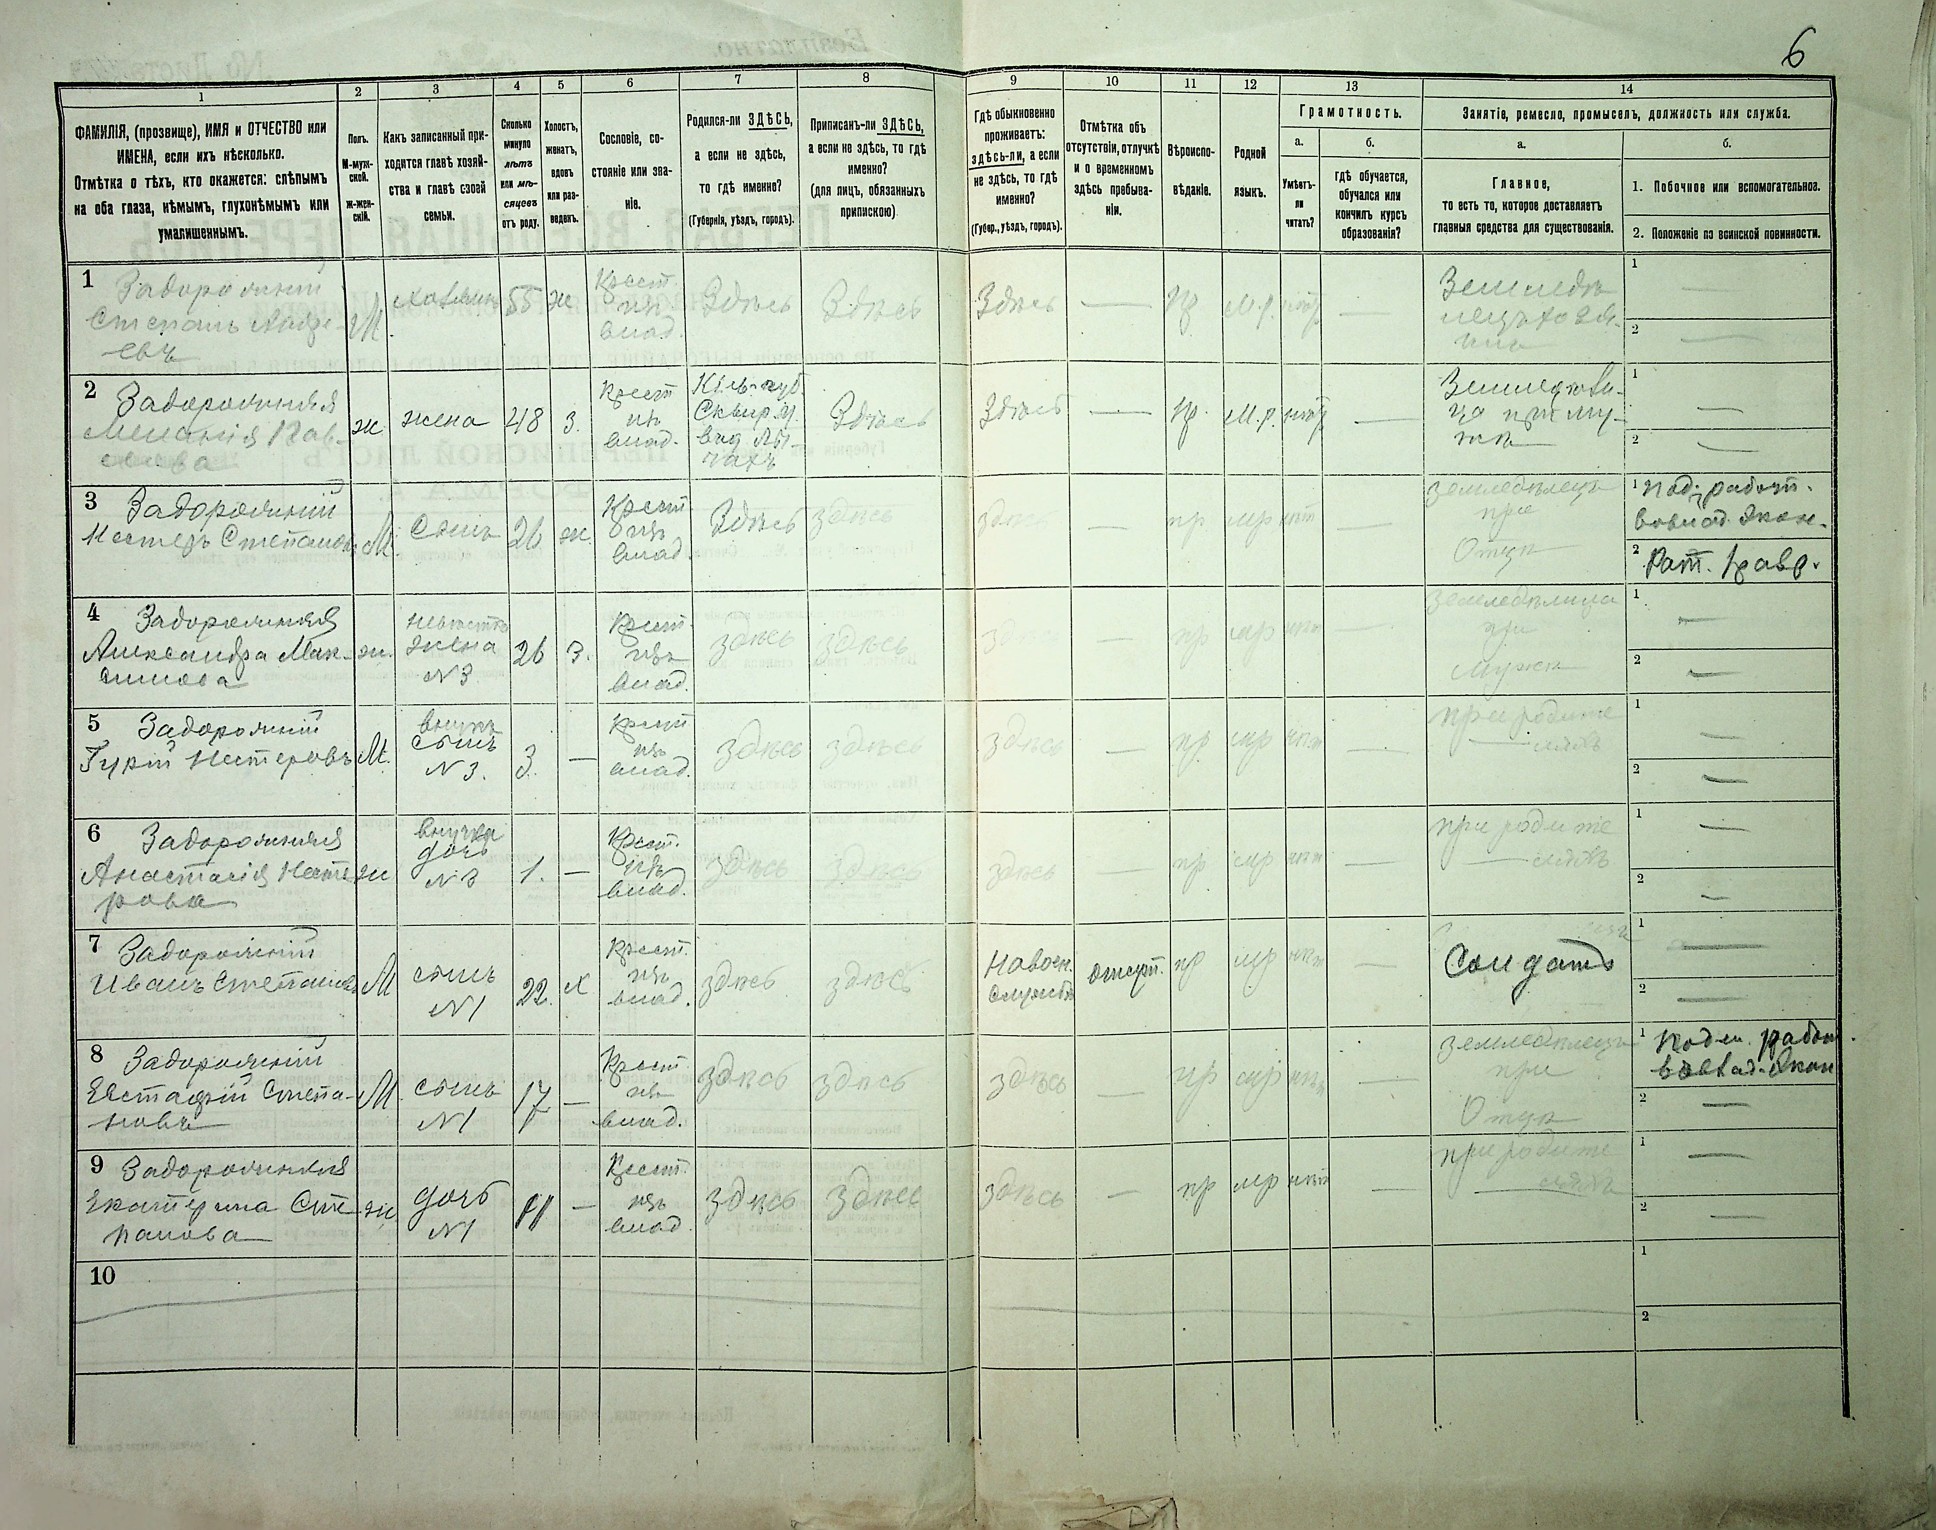 6
1
2
3
4
5
6
7
8
9
10
11
12
13
14
ФАМИЛІЯ, (прозвище), ИМЯ и ОТЧЕСТВО или
ИМЕНА, если ихъ нѣсколько.
Отмѣтка о тѣхъ, кто окажется: слѣпымъ
на оба глаза, нѣмымъ, глухонѣмымъ или
умалишеннымъ.
Полъ.
М-муж-
ской.
ж-жен-
скій.
Какъ записанный при-
ходится главѣ хозяй-
ства и главѣ своей
семьи.
Сколько
минуло
лѣтъ
или мѣ-
сяцевъ
отъ роду.
Холостъ,
женатъ,
вдовъ
или раз-
веденъ.
Сословіе, со-
стояніе или зва-
ніе.
Родился-ли ЗДѢСЬ,
а если не здѣсь,
то гдѣ именно?
(Губернія, уѣздъ, городъ).
Приписанъ-ли ЗДѢСЬ,
а если не здѣсь, то гдѣ
именно?
(для лицъ, обязанныхъ
припискою)
Гдѣ обыкновенно
проживаетъ:
здѣсь-ли, а если
не здѣсь, то гдѣ
именно?
(Губер., уѣздъ, городъ).
Отмѣтка объ
отсутствіи, отлучкѣ
и о временномъ
здѣсь пребыва-
ніи.
Вѣроиспо-
вѣданіе.
Родной
языкъ.
Грамотность.
а.
Умѣетъ-
ли
читать?
б.
гдѣ обучается,
обучался или
кончилъ курсъ
образованія?
Занятіе, ремесло, промыселъ, должность или служба.
а.
Главное,
то есть то, которое доставляетъ
главныя средства для существованія.
б.
1. Побочное или вспомогательное.
2. Положеніе по воинской повинности.
1
Задорожній
Степанъ Андре-
евъ
М
хозяинъ
55
ж
Крест.
изъ
влад.
Здѣсь
Здѣсь
Здѣсь
—
пр
м.р.
—
Земледѣ
лецъ хозя-
инъ
1 —
2 —
2
Задорожняя
Меланія Пав-
лова
ж
жена
48
з.
Крест
изъ
влад.
Кіев. губ.
Сквир. у.
Здѣсь
Здѣсь
—
пр.
м.р.
—
1 —
2 —
3
Задорожній
Нестеръ Степановъ
М.
Сынъ
26
ж.
Крест.
изъ
влад.
Здѣсь
здѣсь
—
пр
мр
—
земледѣлецъ
при
Отцѣ
1
2 Рат.
4
Задорожняя
Александра Мак-
симова
ж.
невѣстка
жена
N 3
26
з.
Крест.
изъ
влад.
здѣсь
здѣсь
—
пр
мр
земледѣлица
при
мужѣ
1 —
2 —
5
Задорожній
Гурій Нестеровъ
М.
внукъ
сынъ
N 3.
3.
—
Крест
изъ
влад.
здѣсь
здѣсь
здѣсь
—
пр
мр
—
при родите
—ляхъ
1 —
2 —
6
Задорожняя
Анастасія Несте
рова
ж
внучка
дочь
N 3
1.
—
Крест.
изъ
влад.
здѣсь
здѣсь
здѣсь
—
пр
мр
—
при родите
—ляхъ
1 —
2 —
7
Задорожній
Иванъ Степановъ
М
сынъ
N 1
22.
х
Крест.
изъ
влад.
здѣсь
здѣсь
На воен.
службѣ
отсут.
пр
мр
—
Солдатъ
1 —
2 —
8
Задорожній
Евстафій Степа-
новъ
М
сынъ
N 1
17
—
Крест.
изъ
влад.
здѣсь
здѣсь
здѣсь
—
пр
мр
—
земледѣлецъ
при
Отцѣ
1
2 —
9
Задорожняя
Екатерина Сте
панова
ж
дочь
N 1
11
—
Крест.
изъ
влад.
здѣсь
здѣсь
здѣсь
—
пр
мр
—
при родите
—ляхъ
1 —
2 —
10
1
2